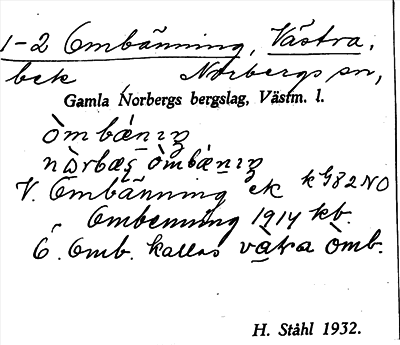 1-2 Ombänning, Västra,
bek Norbergs sn,
Gamla Norbergs bergslag, Västm. l.
òmbǽnıŋ
nòrbæş òmbǽnıŋ
V. Ombänning ek kG82NO
Ombenning 1914 kb.
Ö. Omb. kallas vàtra òmb.
H. Ståhl 1932.